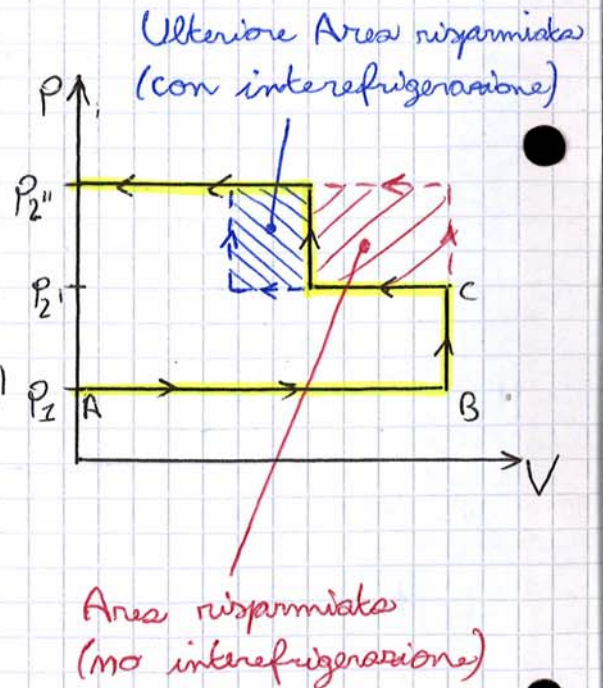 Ulteriore Area risparmiata
(con interefrigerazione)
P
P2"
P2'
C
P1
A
B
V
Area risparmiata
(no interefrigerazione)